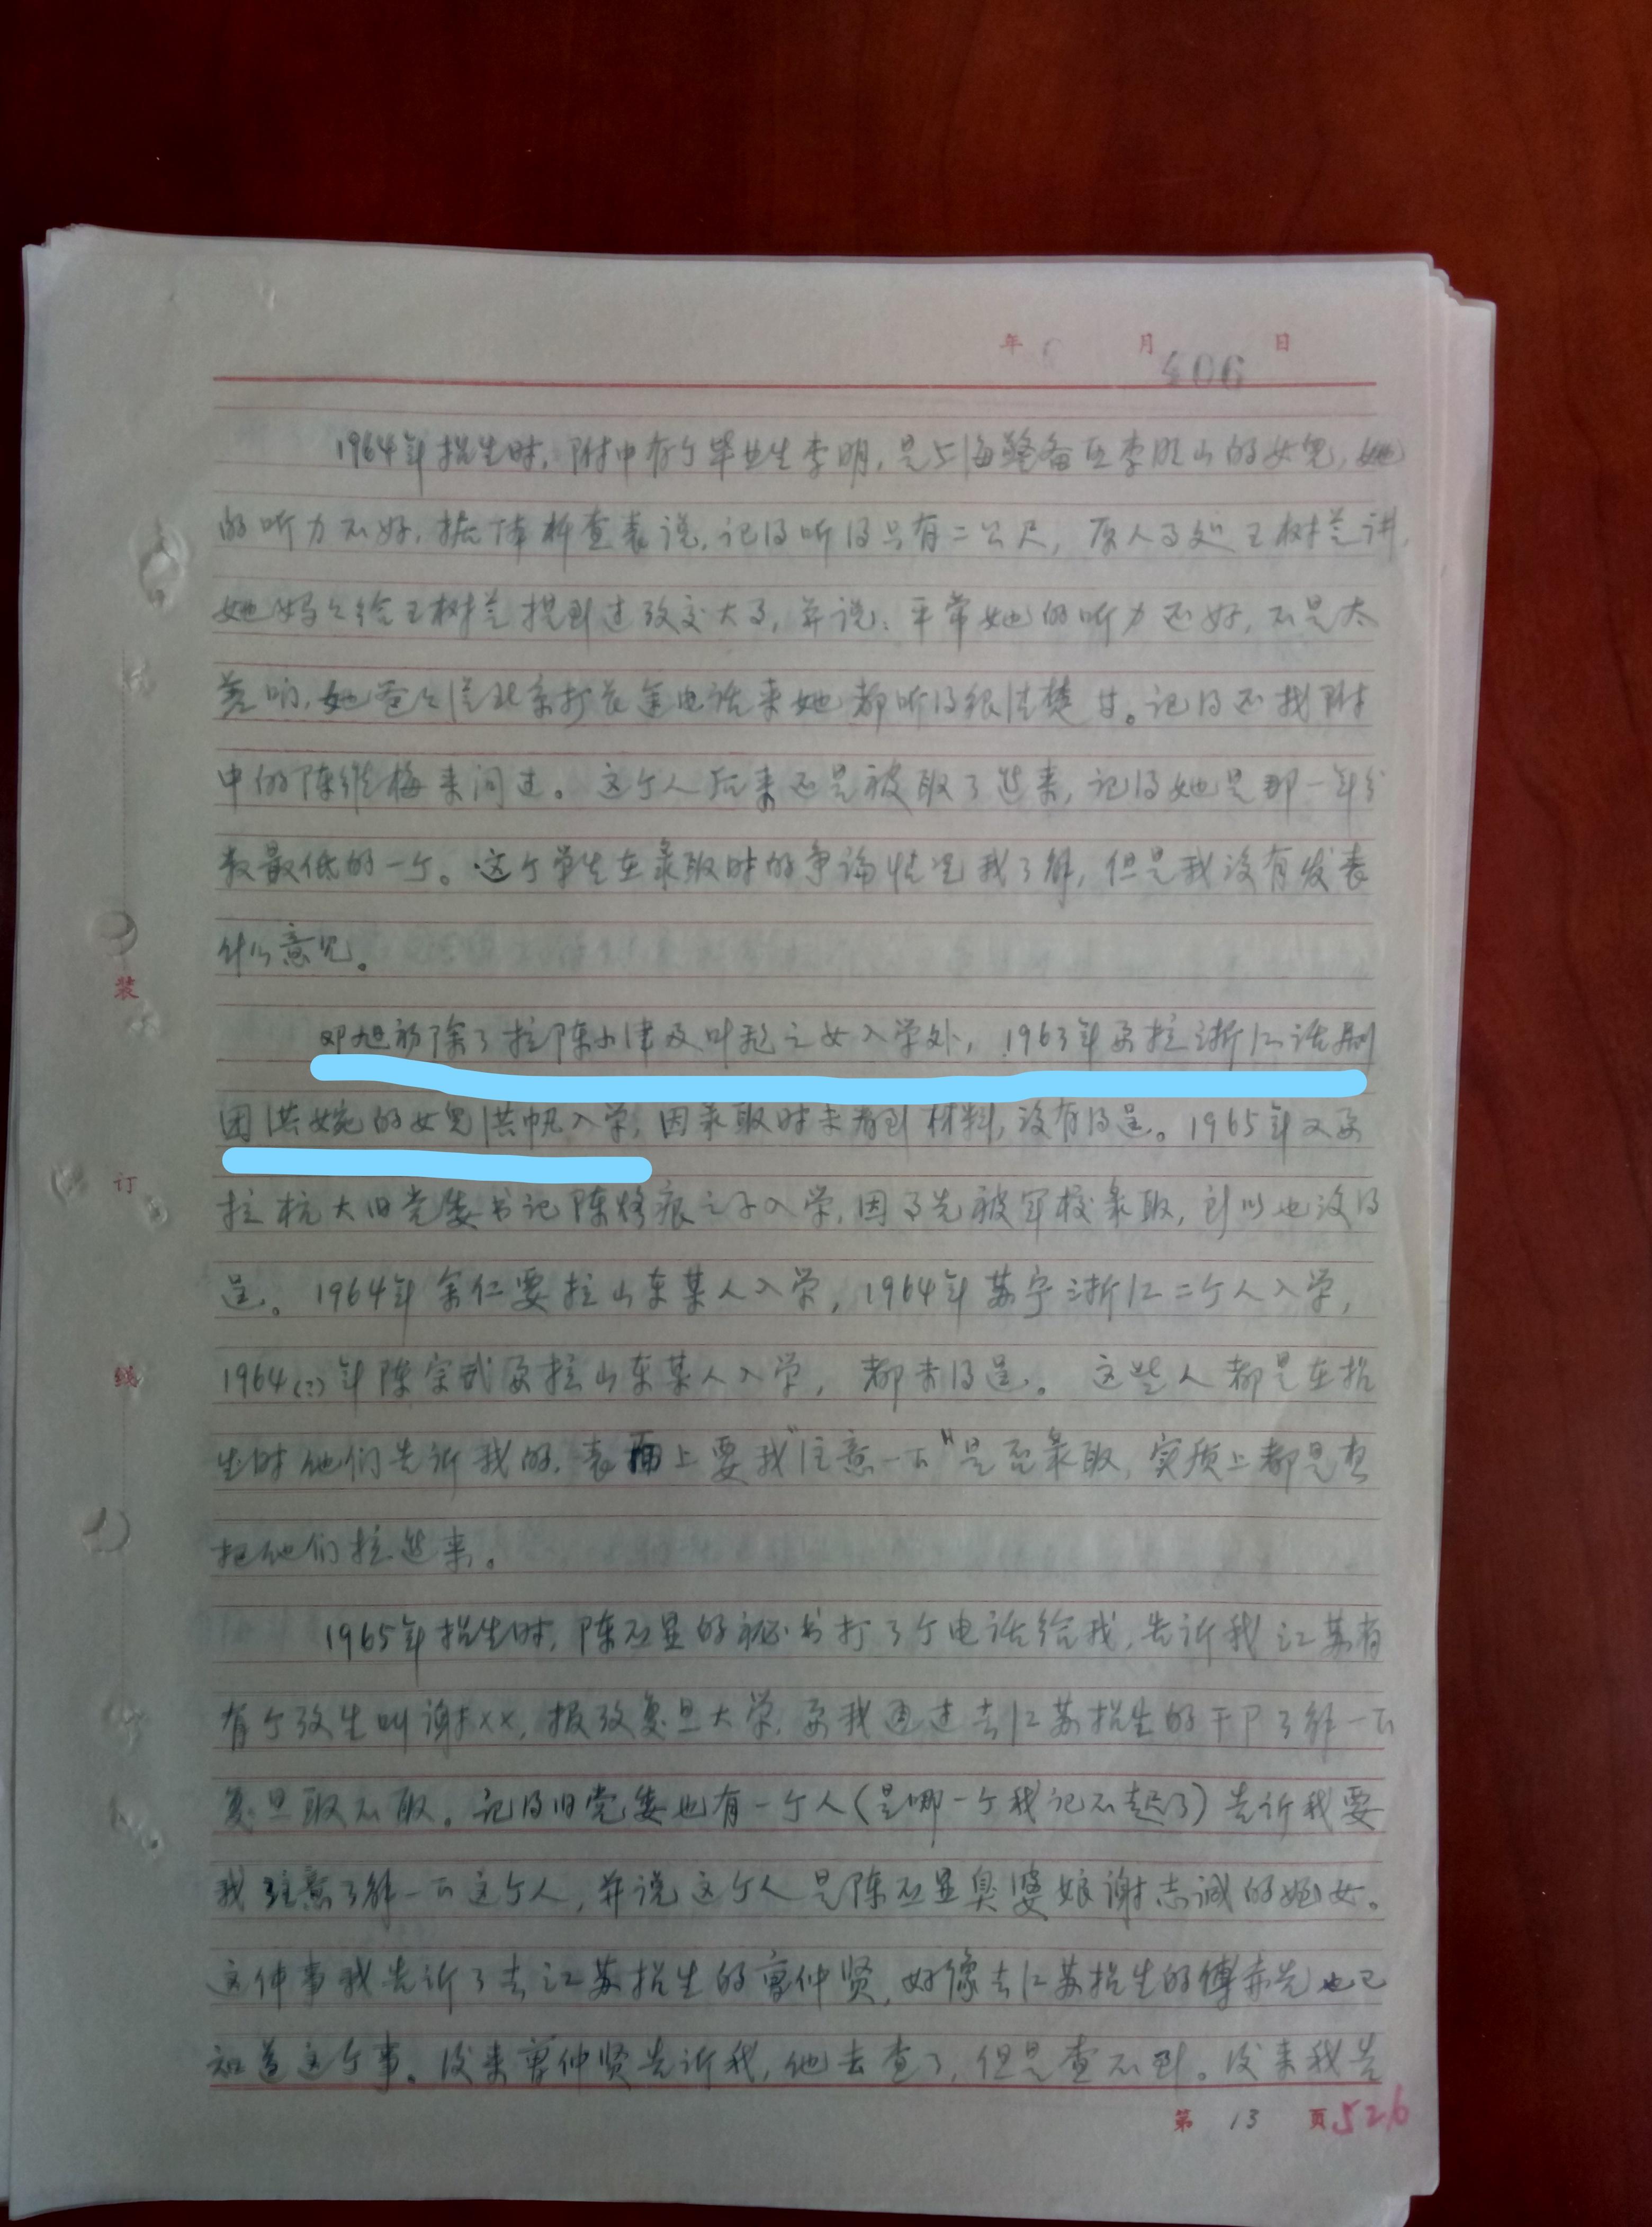 年 月 日
406
1964年招生时，附中有个毕业生李明，是上海警备区李 山的女儿，她
的听力不好，据体格查表说，记得听得只有二公尺，原人事处王树兰讲，
她妈妈给王树兰提到过考交大事，并说：平常她的听力还好，不是太
差的，她爸爸从北京打长途电话来她都听得很清楚 。记得还找附
中的陈维梅来问过。这个人后来还是被取了进来，记得她是那一年分
数最低的一个。这个学生在录取时的争论情况我了解，但是我没有发表
什么意见。
邓旭初除了拉陈小津及叶 之女入学外，1963年要拉浙江话剧
团洪 的女儿洪帆入学，因录取时未看到材料，没有得逞。1965年又要
拉杭大旧党委书记陈烙痕之子入学，因事先被军校录取，所以也没得
逞。1964年余仁要拉山东某人入学，1964年苏宁浙江二个人入学，
1964(?)年陈宗武要拉山东某人入学，都未得逞。这些人都是在招
生时他们告诉我的，表面上要我"注意一下"是否录取，实质上都是要
把他们拉进来。
1965年招生时，陈丕显的秘书打了个电话给我，告诉我江苏有
有个考生叫谢××，报考复旦大学，要我通过去江苏招生的干部了解一下
复旦取不取。记得旧党委也有一个人（是哪一个我记不起了）告诉我要
我注意了解一下这个人，并说这个人是陈丕显臭婆娘谢志诚的侄女。
这件事我告诉了去江苏招生的曾仲贤，好像去江苏招生的傅赤先也已
知道这个事。后来曾仲贤告诉我，他去查了，但是查不到。后来我告
装
订
线
第 13 页 526